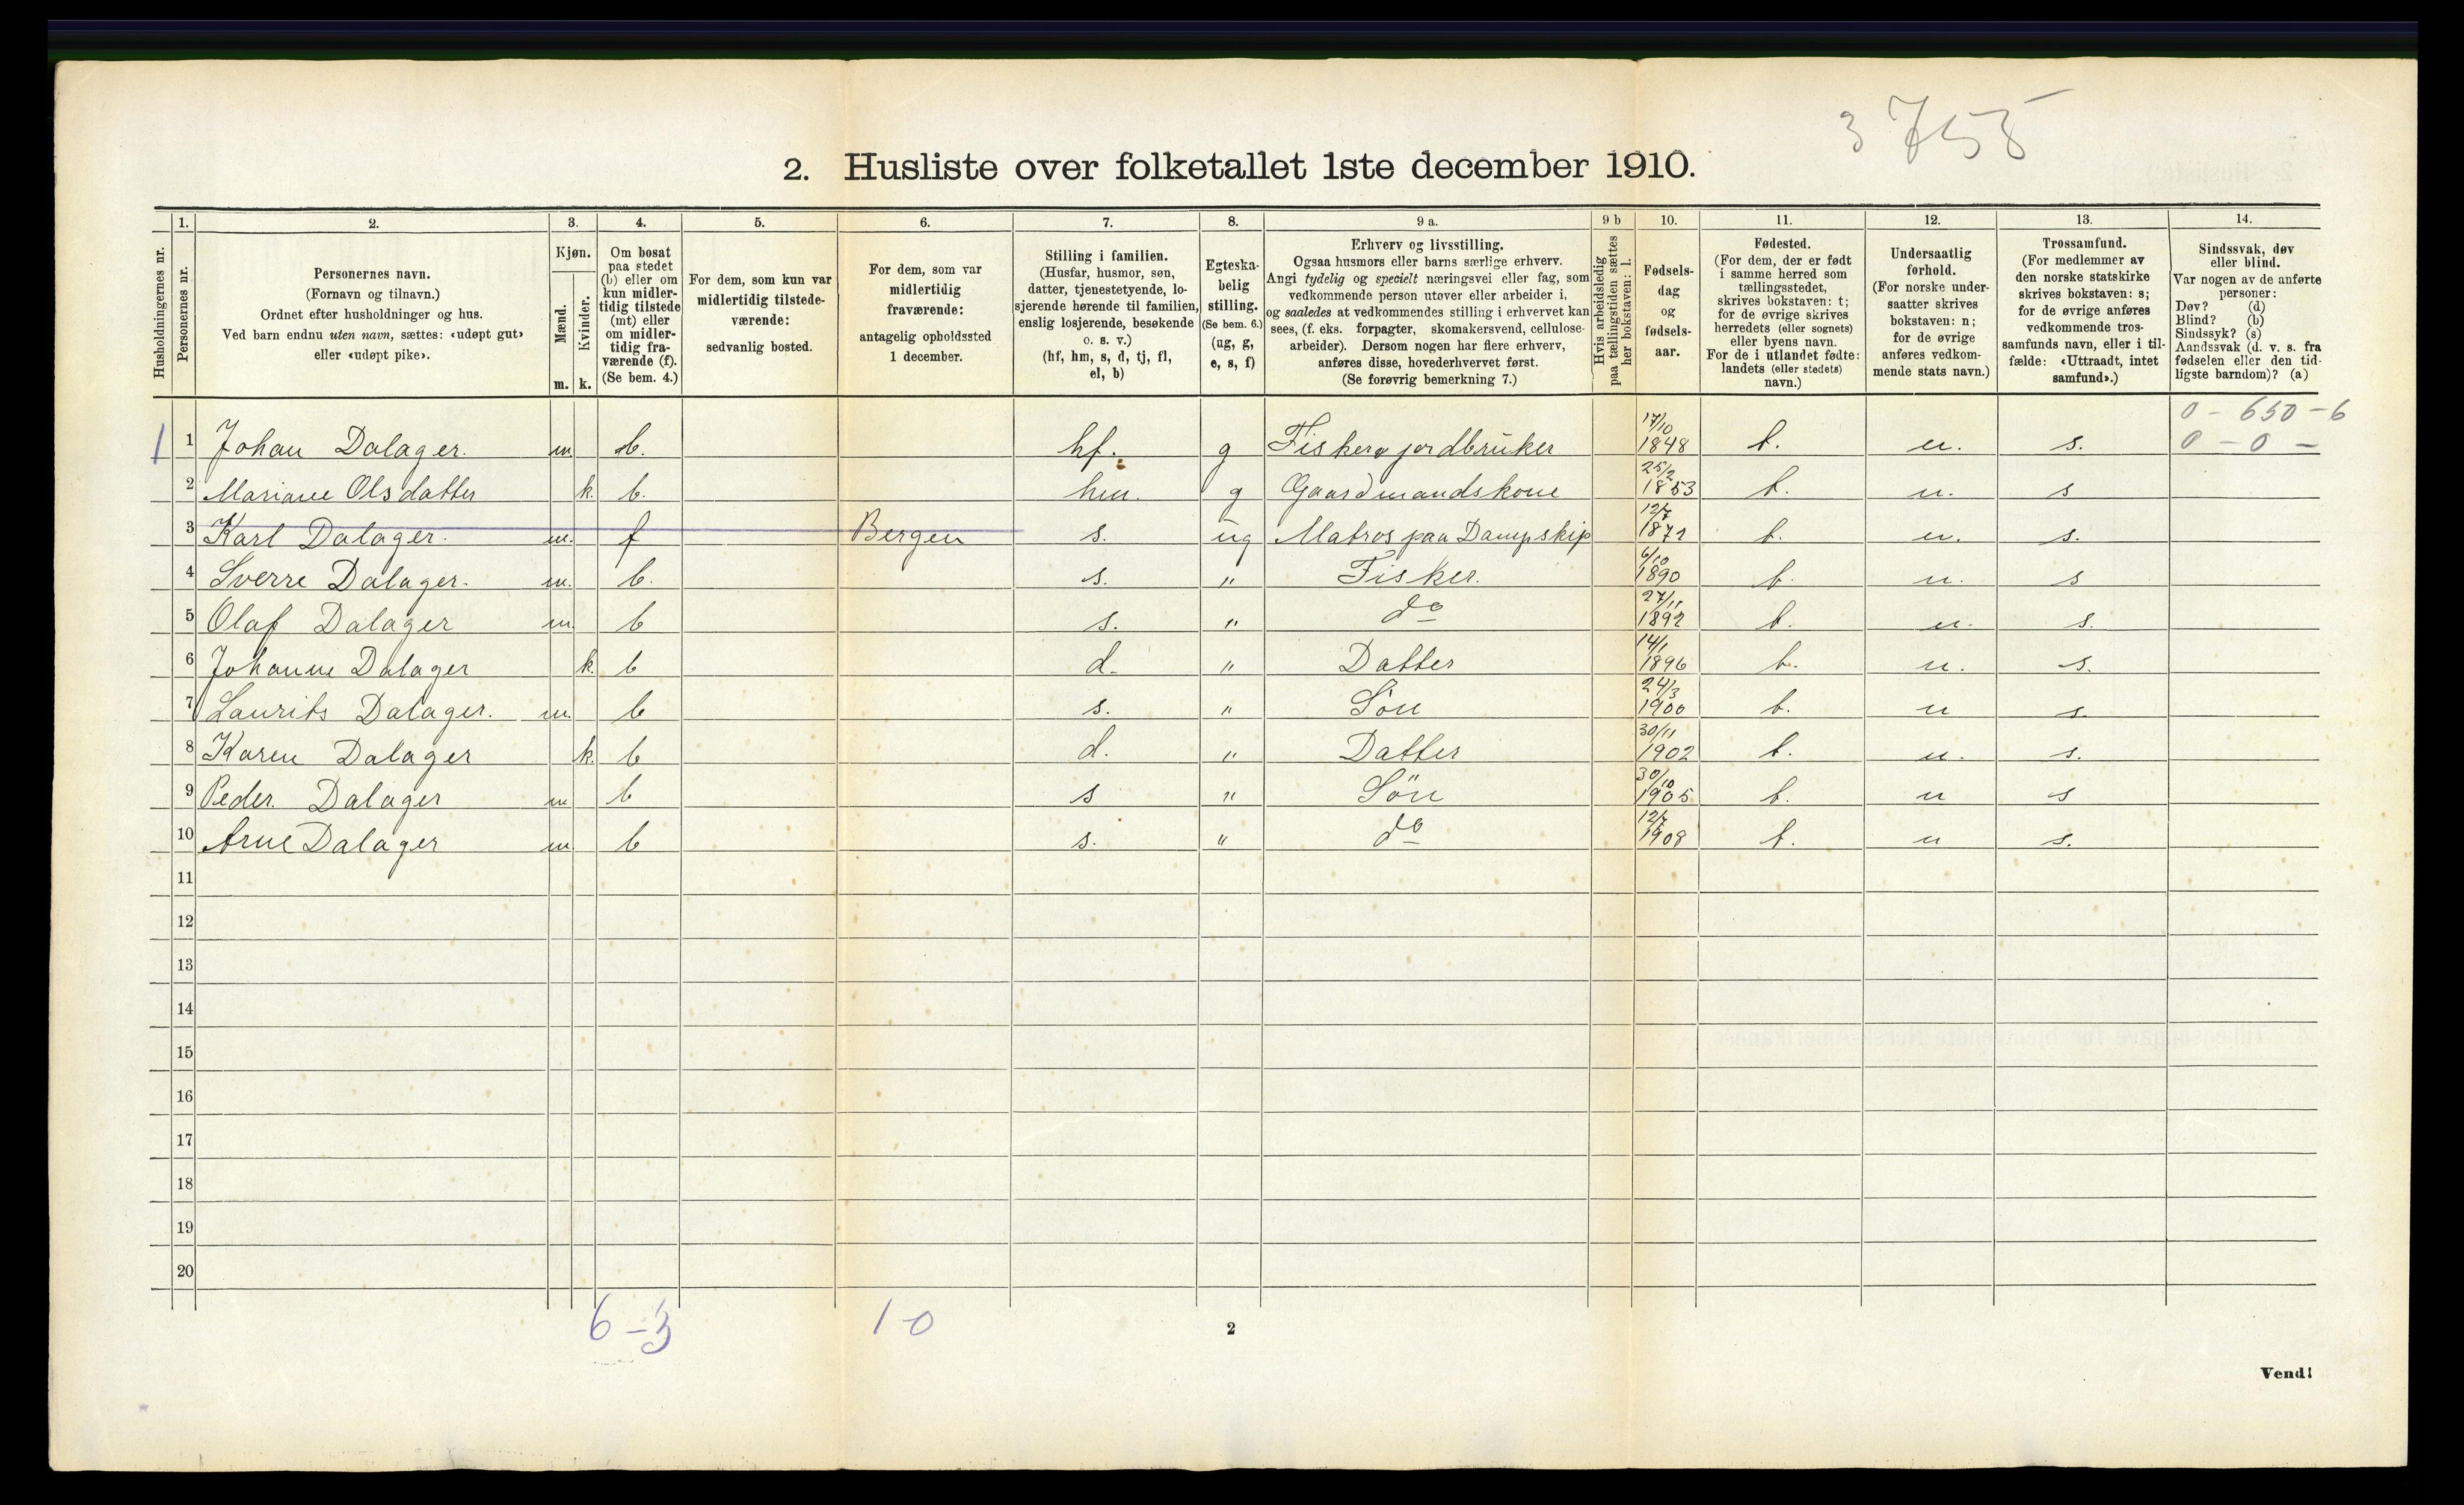 3 755
2. Husliste over folketallet 1ste december 1910.
Husholdningernes nr.
1.
Personernes nr.
2.
Personernes navn.
(Fornavn og tilnavn.)
Ordnet efter husholdninger og hus.
Ved barn endnu uten navn, sættes: «udøpt gut»
eller «udøpt pike».
3.
Kjøn.
Mænd.
m.
Kvinder.
k.
4.
Om bosat
paa stedet
(b) eller om
kun midler-
tidig tilstede
(mt) eller
om midler-
tidig fra-
værende (f).
(Se bem. 4.)
5.
For dem, som kun var
midlertidig tilstede-
værende:
sedvanlig bosted.
6.
For dem, som var
midlertidig
fraværende:
antagelig opholdssted
1 december.
7.
Stilling i familien.
(Husfar, husmor, søn,
datter, tjenestetyende, lo-
sjerende hørende til familien,
enslig losjerende, besøkende
o. s. v.)
(hf, hm, s, d, tj, fl,
el, b)
8.
Egteska-
belig
stilling.
(Se bem. 6.)
(ug, g,
e, s, f)
9 a.
Erhverv og livsstilling.
Ogsaa husmors eller barns særlige erhverv.
Angi tydelig og specielt næringsvei eller fag, som
vedkommende person utøver eller arbeider i,
og saaledes at vedkommendes stilling i erhvervet kan
sees, (f. eks. forpagter, skomakersvend, cellulose-
arbeider). Dersom nogen har flere erhverv,
anføres disse, hovederhvervet først.
(Se forøvrig bemerkning 7.)
9 b
Hvis arbeidsledig
paa tællingstiden sættes
her bokstaven: l.
10.
Fødsels-
dag
og
fødsels-
aar.
11.
Fødested.
(For dem, der er født
i samme herred som
tællingsstedet,
skrives bokstaven: t;
for de øvrige skrives
herredets (eller sognets)
eller byens navn.
For de i utlandet fødte:
landets (eller stedets)
navn.)
12.
Undersaatlig
forhold.
(For norske under-
saatter skrives
bokstaven: n;
for de øvrige
anføres vedkom-
mende stats navn.)
13.
Trossamfund.
(For medlemmer av
den norske statskirke
skrives bokstaven: s;
for de øvrige anføres
vedkommende tros-
samfunds navn, eller i til-
fælde: «Uttraadt, intet
samfund».)
14.
Sindssvak, døv
eller blind.
Var nogen av de anførte
personer:
Døv? (d)
Blind? (b)
Sindssyk? (s)
Aandssvak (d. v. s. fra
fødselen eller den tid-
ligste barndom)? (a)
0 - 650 - 6
1 1 Johan Dalager. m. b. hf. g Fisker o jordbruker 17/10 1848 t. n. s. 0 - 0 -
2 Mariane Olsdatter k. b. hm. g Gaardmandskone 25/2 1853 t. n. s
3 Karl Dalager. m. f Bergen s. ug Matros paa Dampskip 12/7 1871 t. n. s.
4 Sverre Dalager. m. b. s. " Fisker. 6/10 1890 t. n. s
5 Olaf Dalager m. b s. " do 27/11 1892 t. n. s.
6 Johanne Dalager k. b d. " Datter 14/1 1896 t. n. s.
7 Laurits Dalager. m. b s. " Søn 24/3 1900 t. n s.
8 Karen Dalager k. b d. " Datter 30/11 1902 t. n. s.
9 Peder. Dalager m b s " Sön 30/10 1905 t. n s
10 Arne Dalager m b s. " do 12/7 1908 t. n s.
11
12
13
14
15
16
17
18
19
20
6 - 3 1-0
2
Vend!